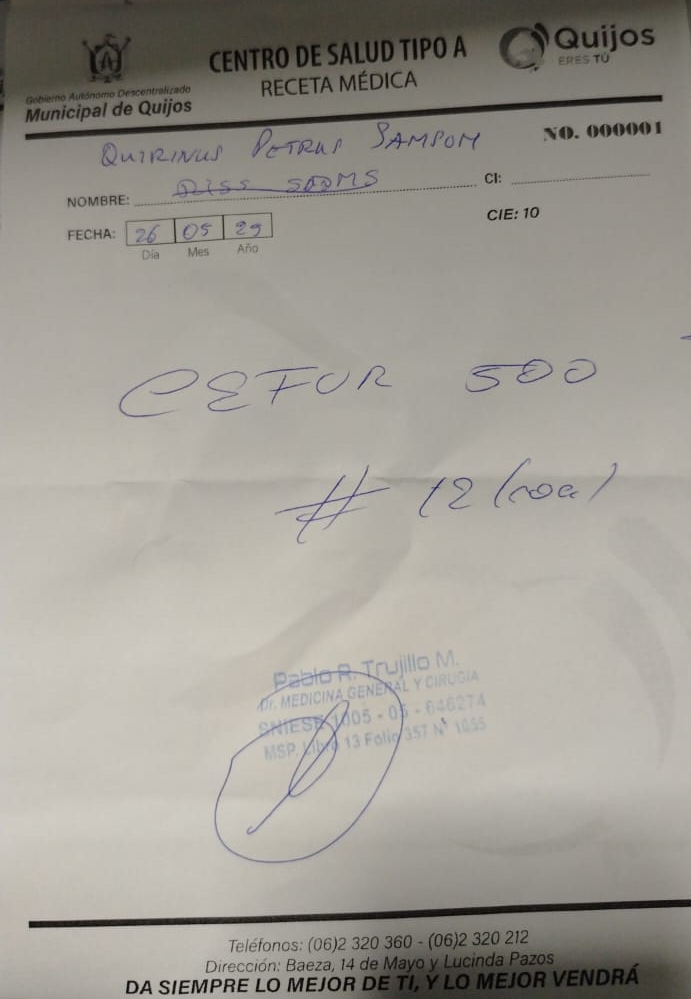 Gobierno Autónomo Descentralizado
Municipal de Quijos
CENTRO DE SALUD TIPO A
RECETA MÉDICA
Quijos
ERES TÚ
NO. 000001
QUIRINUS PETRUS SAMSOM
NOMBRE:
CI:
FECHA: 26 05 29
Día Mes Año
CIE: 10
CEFUR 500
# 12 (
Pablo R. Trujillo M.
Dr. MEDICINA GENERAL Y CIRUGIA
SNIESE 1005 - 05 - 646274
MSP. Libro 13 Folio 357 N° 1055
Teléfonos: (06)2 320 360 - (06)2 320 212
Dirección: Baeza, 14 de Mayo y Lucinda Pazos
DA SIEMPRE LO MEJOR DE TÍ, Y LO MEJOR VENDRÁ